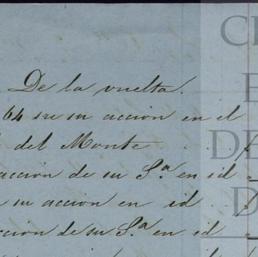 De la vuelta.
64 su su accion en el
del Monte
accion de su S.ª en id
su accion en id
ccion de su S.ª en id